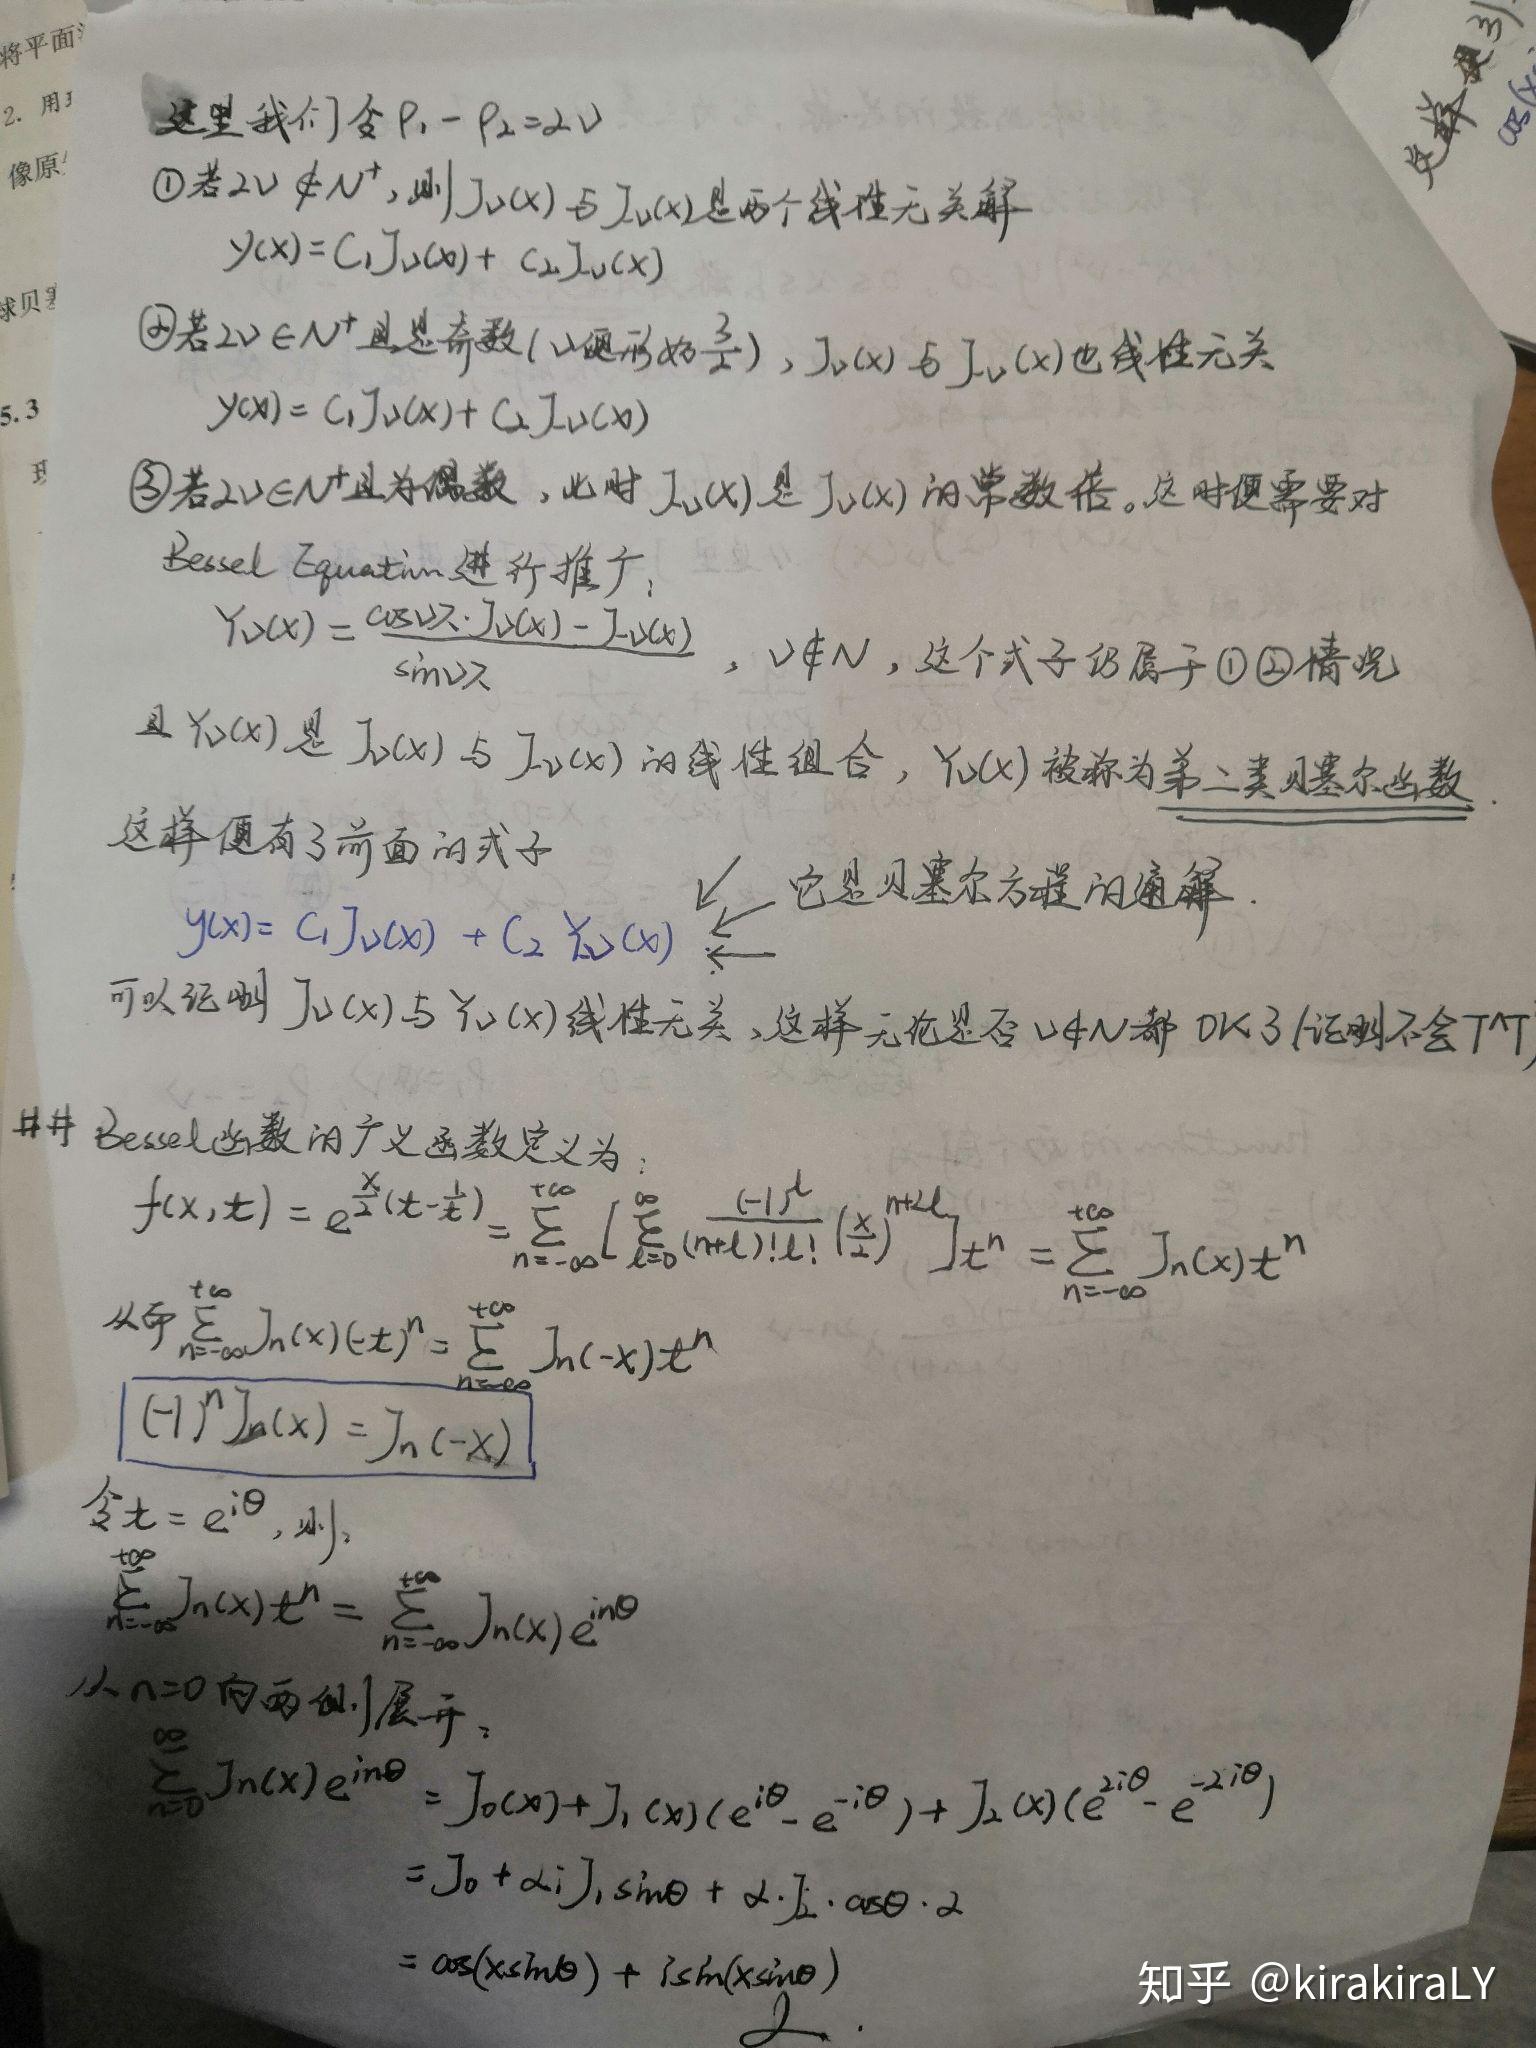 将平面
2. 用
像原
球贝塞
5.3
这里我们令 ρ₁ - ρ₂ = 2ν
①若2ν∉N⁺,则J_ν(x)与J_{-ν}(x)是两个线性无关解
y(x) = C₁J_ν(x) + C₂J_{-ν}(x)
②若2ν∈N⁺且是奇数(ν便形如3/2), J_ν(x)与J_{-ν}(x)也线性无关
y(x) = C₁J_ν(x) + C₂J_{-ν}(x)
③若2ν∈N⁺且为偶数, 此时J_ν(x)是J_{-ν}(x)的常数倍。这时便需要对
Bessel Equation进行推广:
Y_ν(x) = (cosνπ·J_ν(x) - J_{-ν}(x))/sinνπ , ν∉N, 这个式子仍属于①②情况
且Y_ν(x)是J_ν(x)与J_{-ν}(x)的线性组合, Y_ν(x)被称为第二类贝塞尔函数.
这样便有了前面的式子
y(x) = C₁J_ν(x) + C₂Y_ν(x) 它是贝塞尔方程的通解.
可以证明J_ν(x)与Y_ν(x)线性无关、这样无论是否ν∉N都OK了(证明不会T^T)
## Bessel函数的广义函数定义为:
f(x,t) = e^{x/2(t-1/t)} = Σ_{n=-∞}^{+∞} [Σ_{l=0}^{∞} (-1)^l/((n+l)!l!) (x/2)^{n+2l}]t^n = Σ_{n=-∞}^{+∞} J_n(x)t^n
从而 Σ_{n=-∞}^{+∞} J_n(x)(-t)^n = Σ_{n=-∞}^{+∞} J_n(-x)t^n
(-1)^n J_n(x) = J_n(-x)
令t = e^{iθ}, 则:
Σ_{n=-∞}^{+∞} J_n(x)t^n = Σ_{n=-∞}^{+∞} J_n(x)e^{inθ}
从n=0向两侧展开:
Σ_{n=0}^{∞} J_n(x)e^{inθ} = J₀(x) + J₁(x)(e^{iθ} - e^{-iθ}) + J₂(x)(e^{2iθ} - e^{-2iθ})
= J₀ + 2iJ₁sinθ + 2·J₂·cosθ·2
= cos(xsinθ) + isin(xsinθ)
2.
知乎 @kirakiraLY